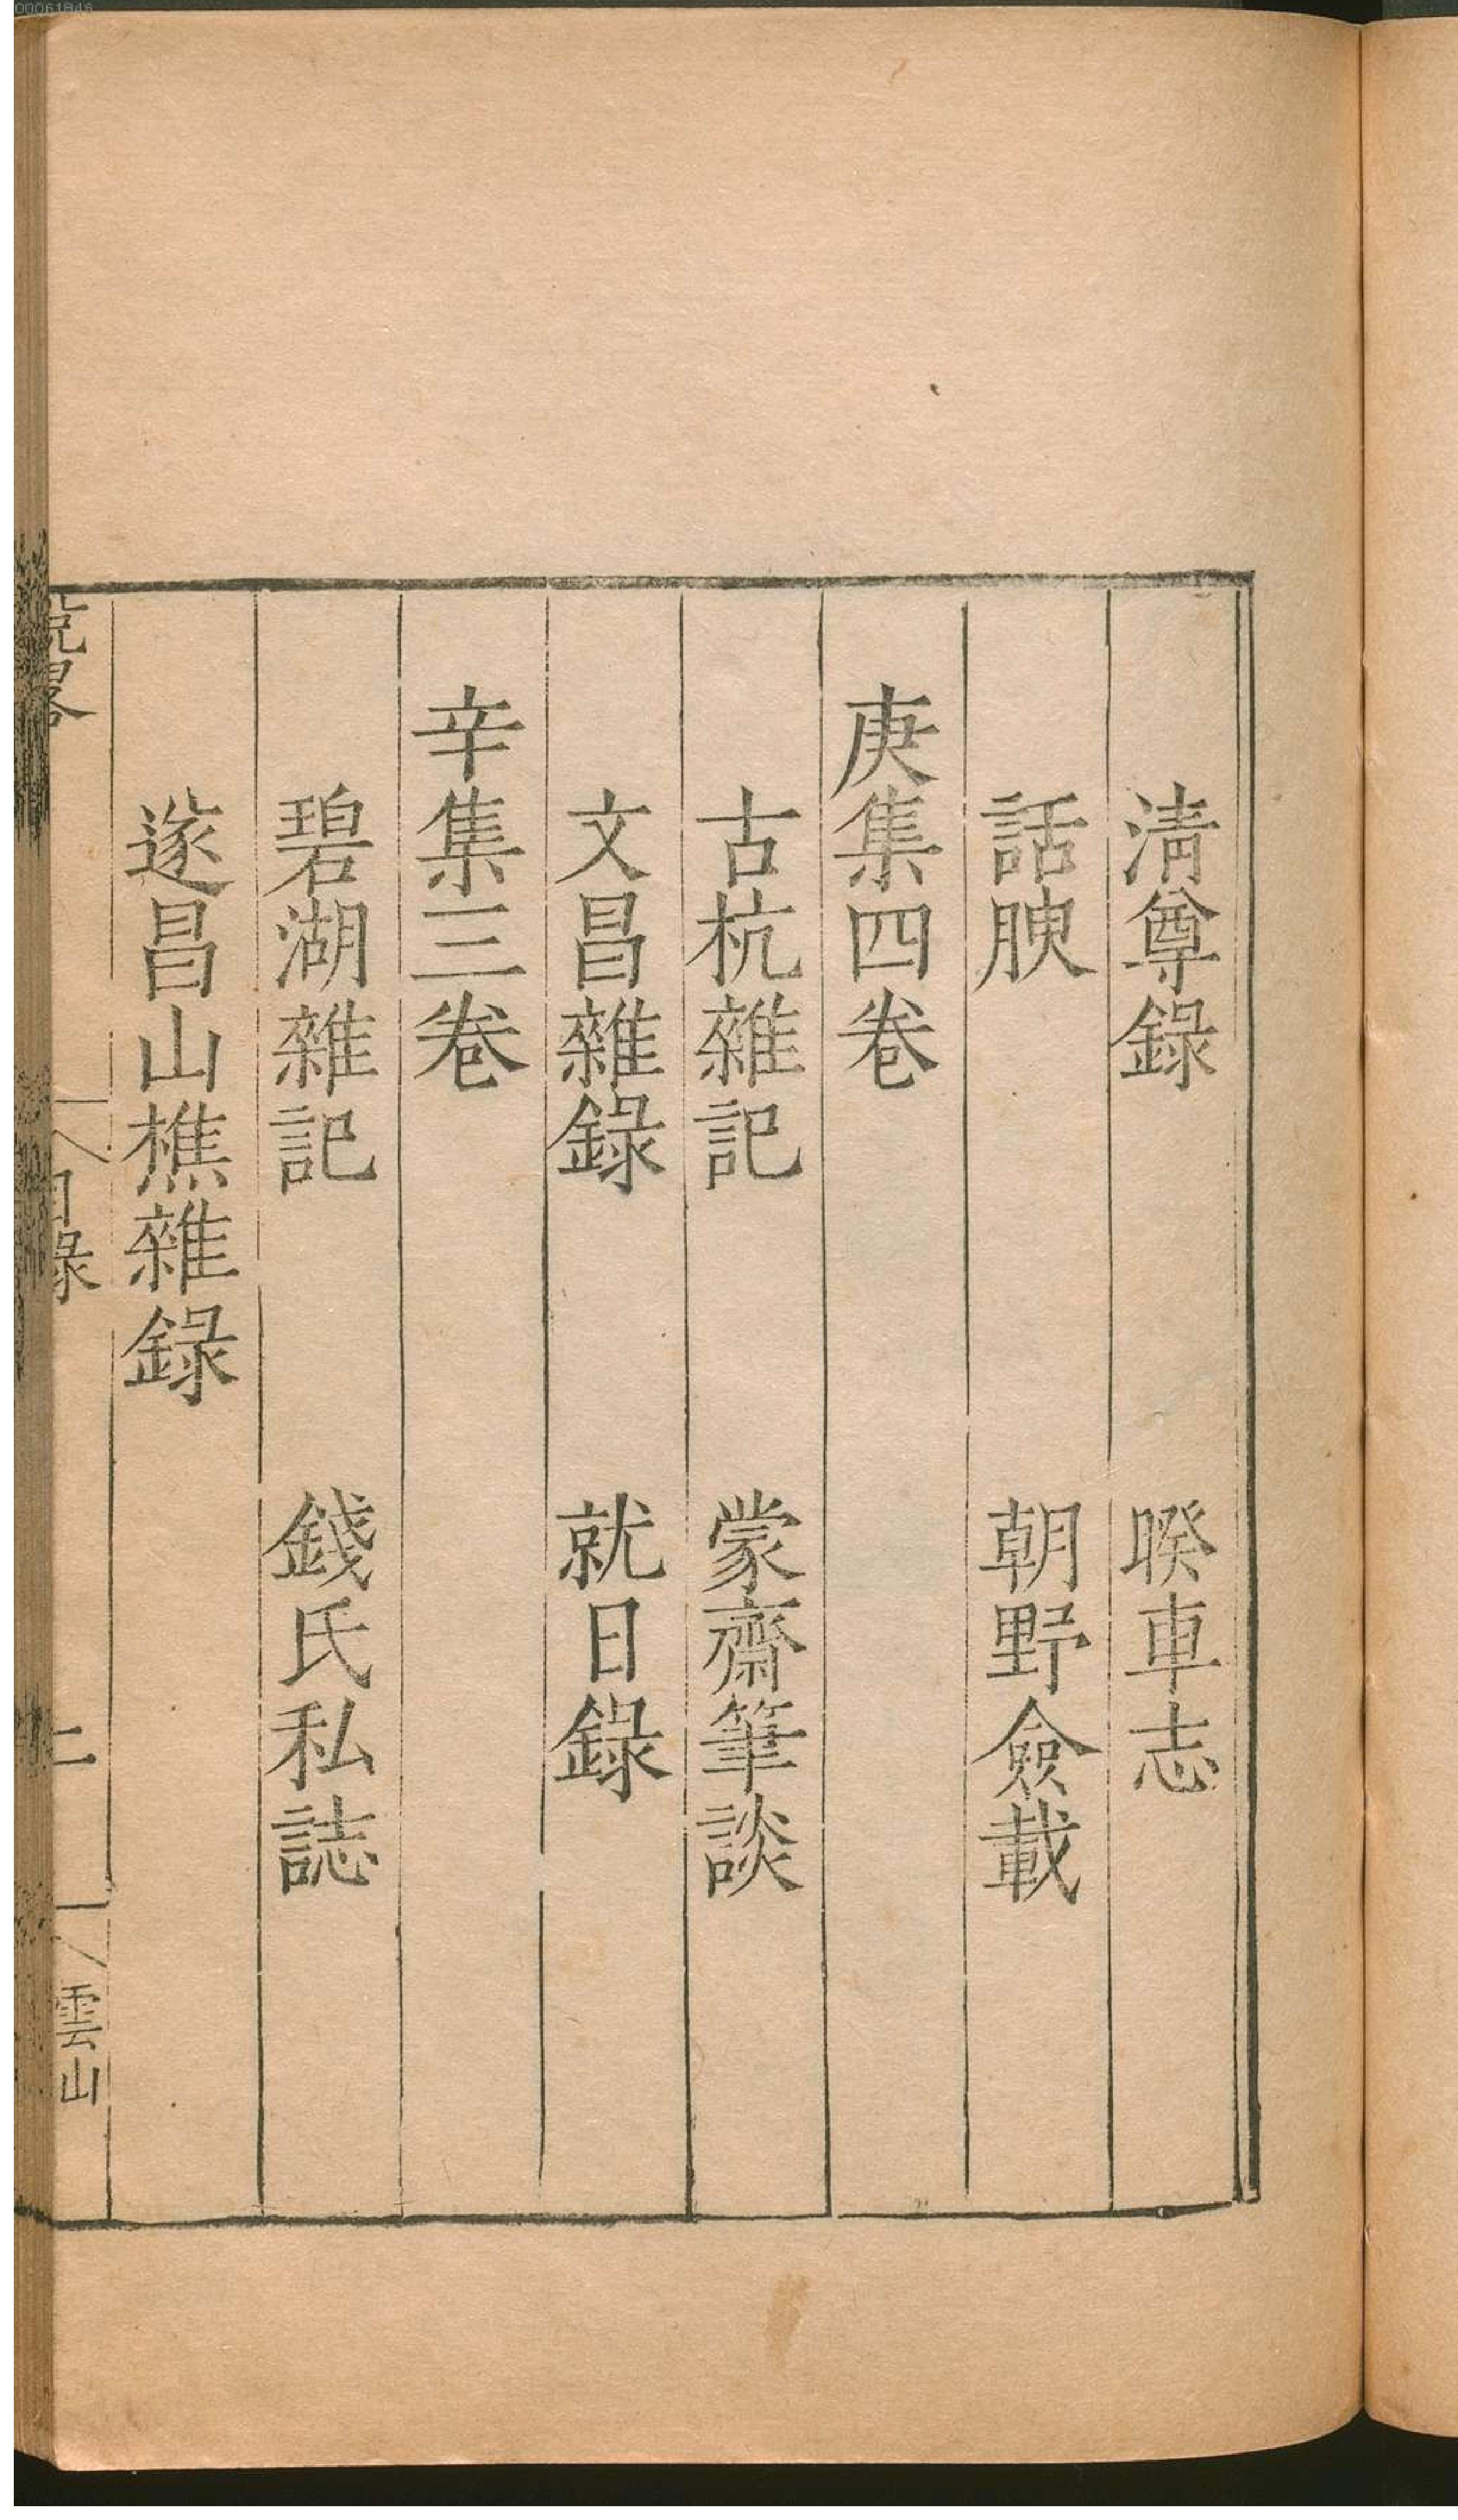 清尊錄　暌車志
話腴　朝野僉載
庚集四卷
古杭雜記　蒙齋筆談
文昌雜錄　就日錄
辛集三卷
碧湖雜記　錢氏私誌
遂昌山樵雜錄
目錄　二　雲山